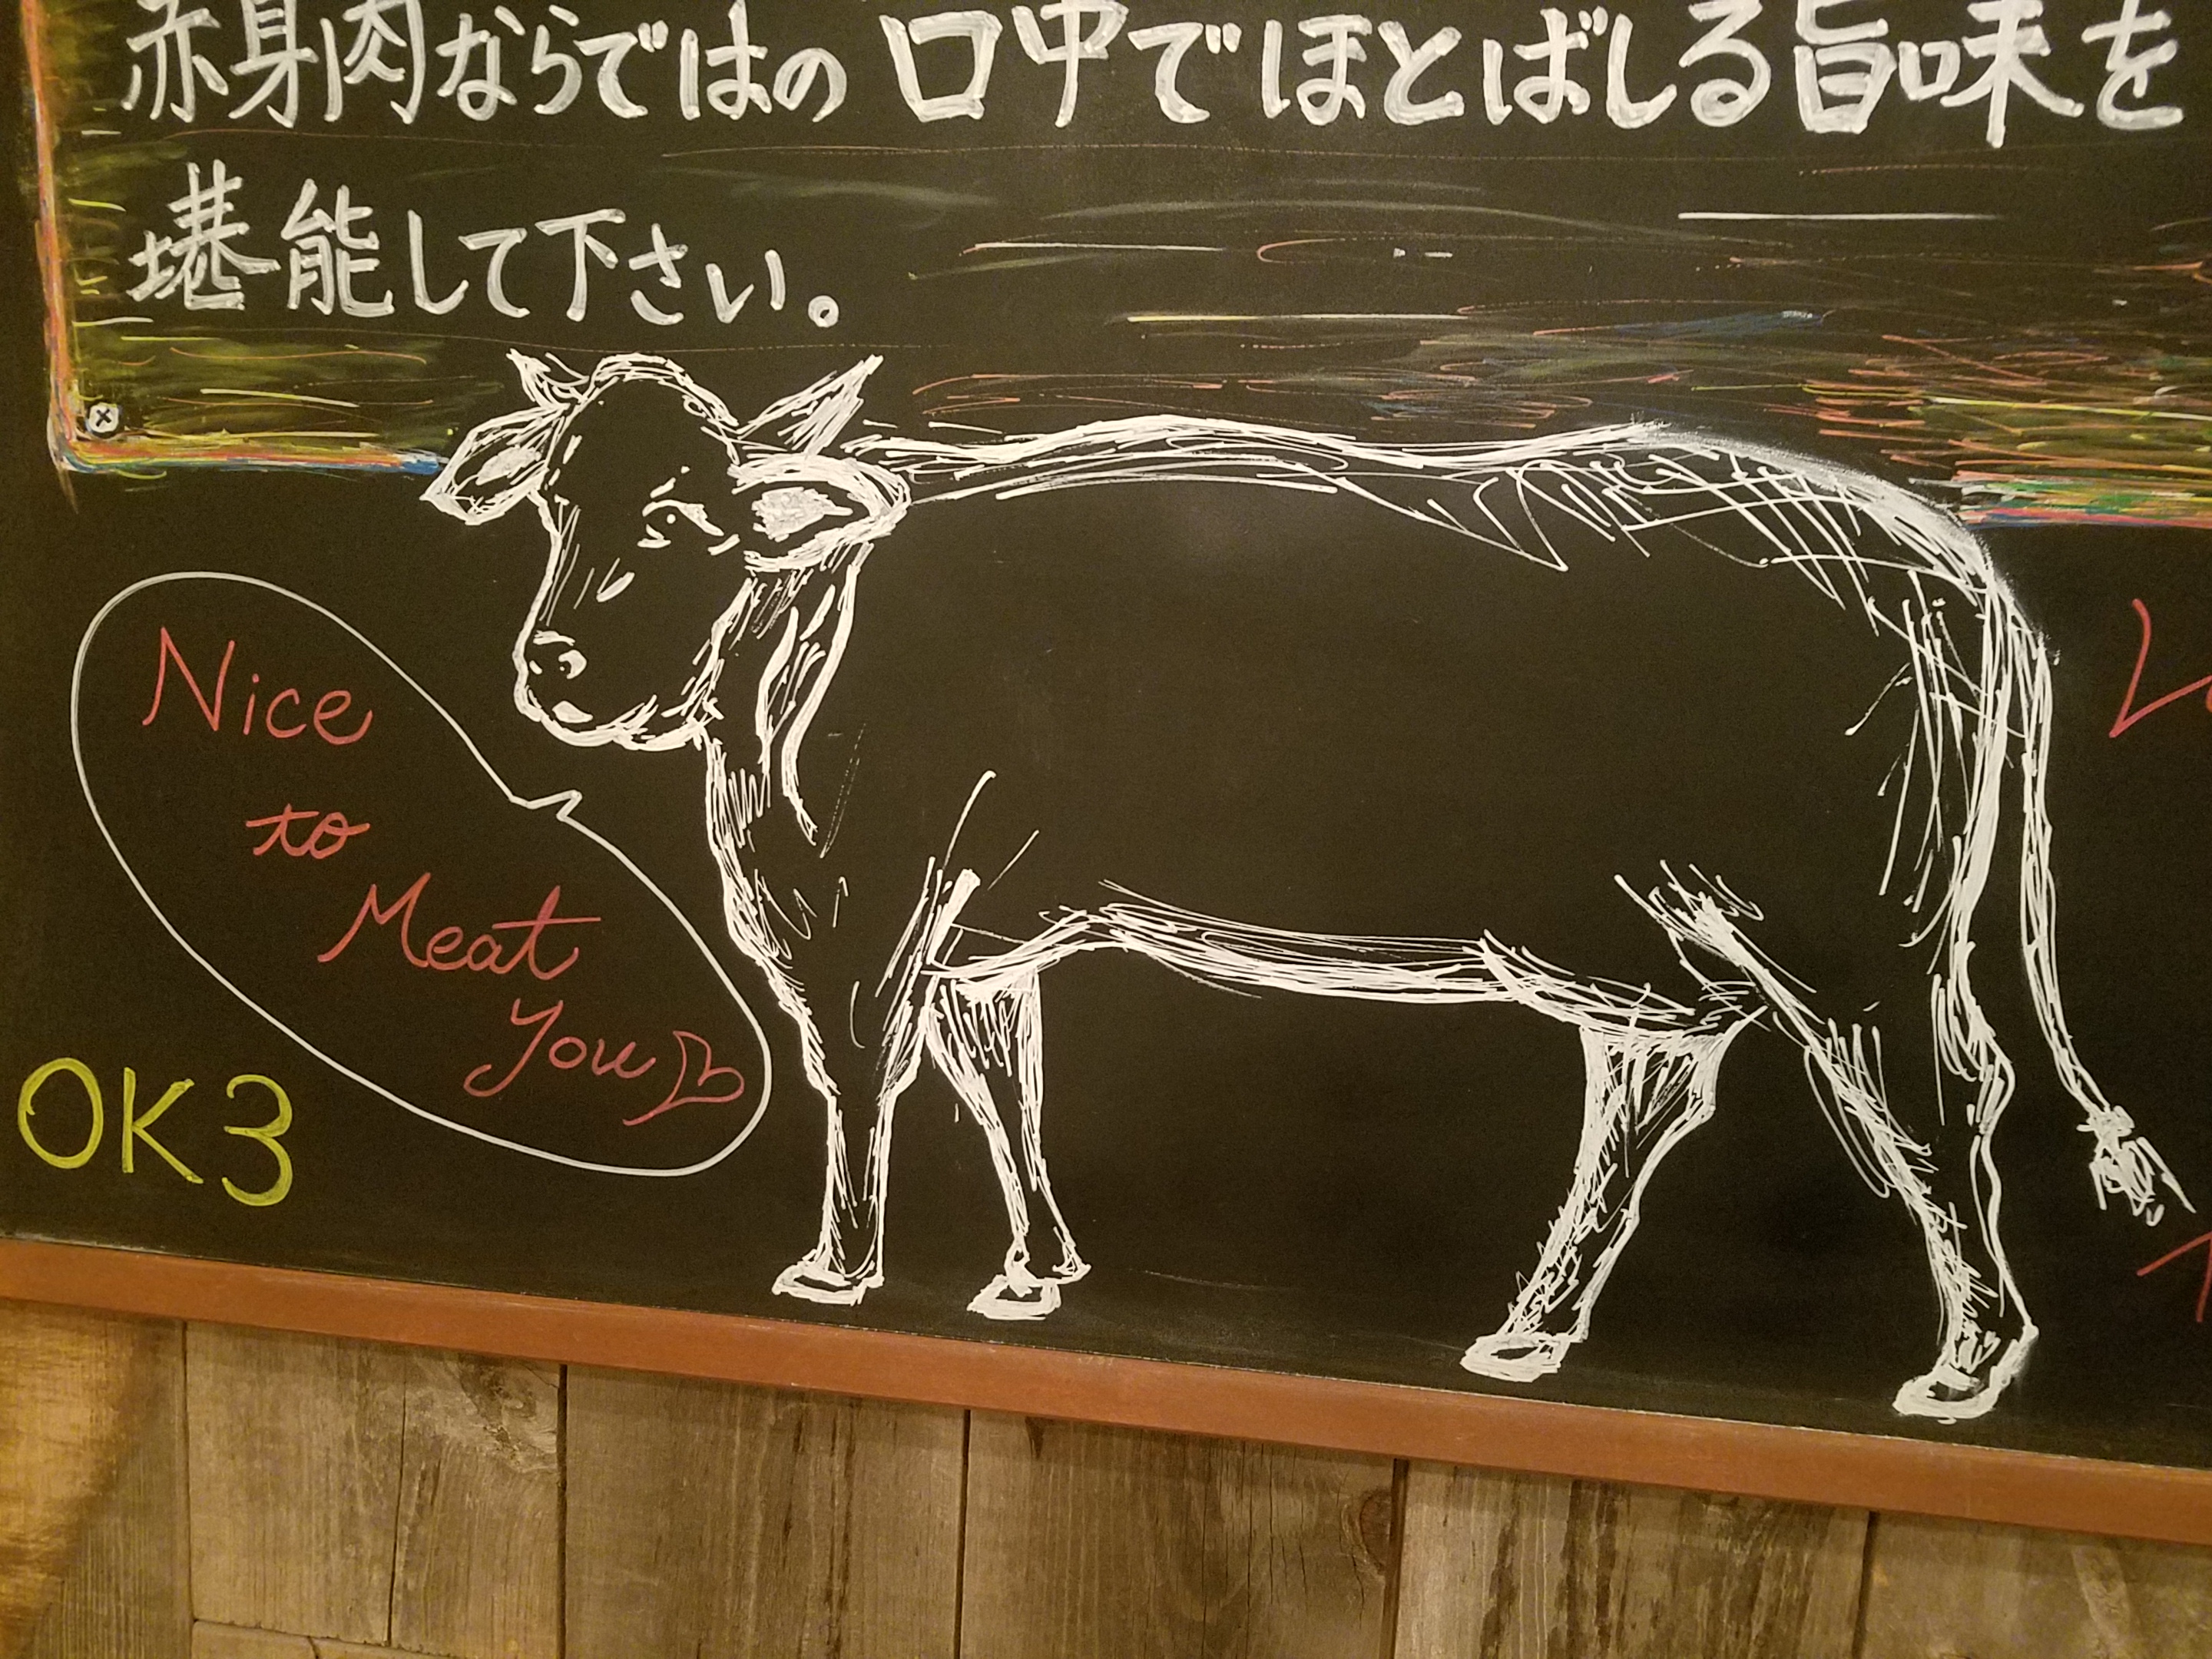 赤身肉ならではの 口中でほとばしる旨味を
堪能して下さい。
Nice
to
Meat
You
OK3